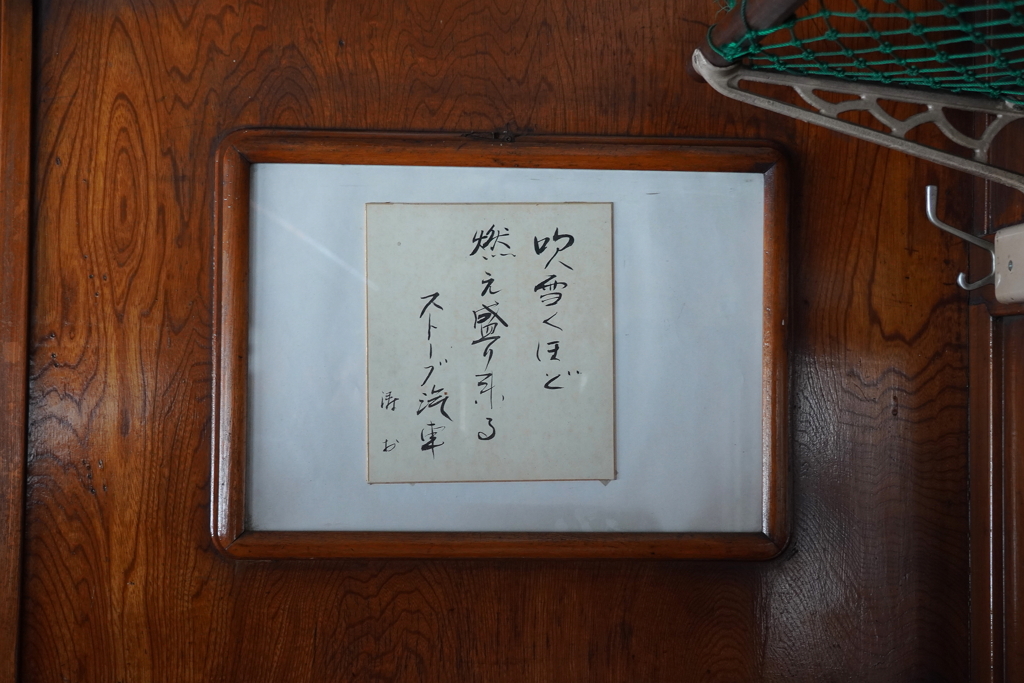 吹雪くほど
燃え盛り来る
ストーブ汽車